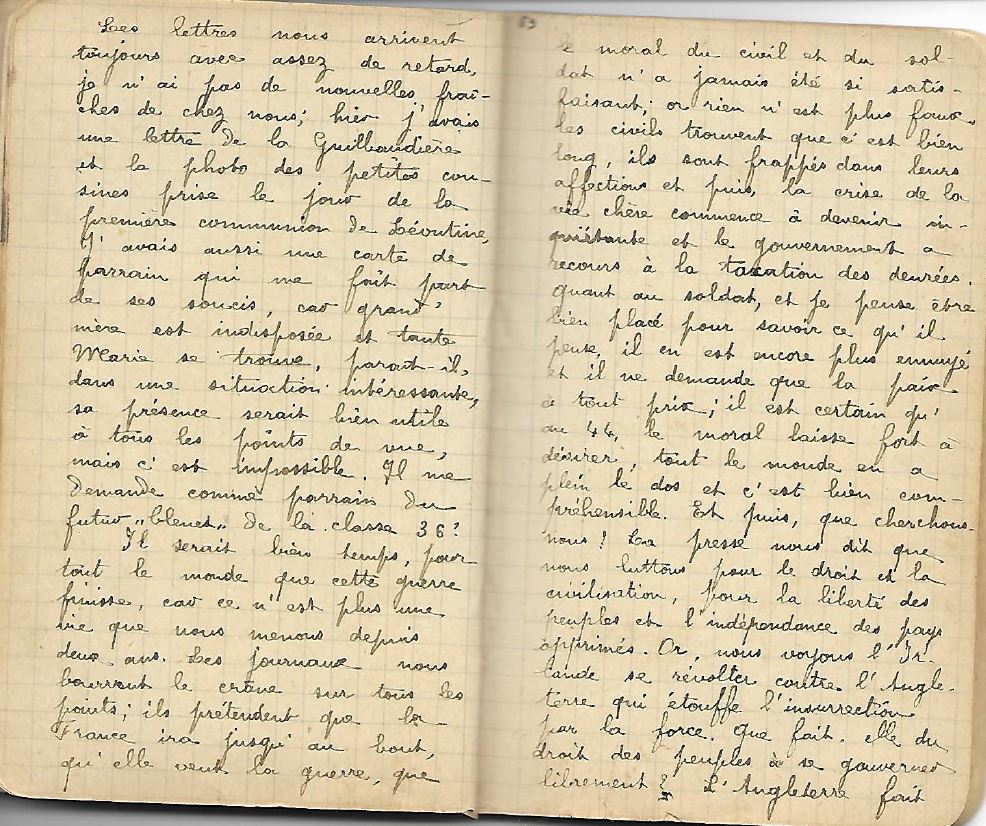 Les lettres nous arrivent
toujours avec assez de retard,
je n'ai pas de nouvelles fraî-
ches de chez nous; hier j'avais
une lettre de la Guilbaudière
et la photo des petites cou-
sines prise le jour de la
première communion de Léontine,
J'avais aussi une carte de
parrain qui me fait part
de ses soucis, car grand'
mère est indisposée et tante
Marie se trouve, parait-il,
dans une situation intéressante,
sa présence serait bien utile
à tous les points de vue,
mais c'est impossible. Il me
demande comme parrain du
futur "bleuet" de la classe 36!
Il serait bien temps, pour
tout le monde que cette guerre
finisse, car ce n'est plus une
vie que nous menons depuis
deux ans. Les journaux nous
bourrent le crâne sur tous les
points; ils prétendent que la
France ira jusqu'au bout,
qu'elle veut la guerre, que
53
le moral du civil et du sol-
dat n'a jamais été si satis-
faisant; or rien n'est plus faux.
Les civils trouvent que c'est bien
long, ils sont frappés dans leurs
affections et puis, la crise de la
vie chère commence à devenir in-
quiétante et le gouvernement a
recours à la taxation des denrées.
Quant au soldat, et je pense être
bien placé pour savoir ce qu'il
pense, il en est encore plus ennuyé
et il ne demande que la paix
à tout prix; il est certain qu'
au 44, le moral laisse fort à
désirer, tout le monde en a
plein le dos et c'est bien com-
préhensible. Et puis, que cherchons-
nous! La presse nous dit que
nous luttons pour le droit et la
civilisation, pour la liberté des
peuples et l'indépendance des pays
opprimés. Or, nous voyons l'Ir-
lande se révolter contre l'Angle-
terre qui étouffe l'insurrection
par la force. Que fait-elle du
droit des peuples à se gouverner
librement? L'Angleterre fait